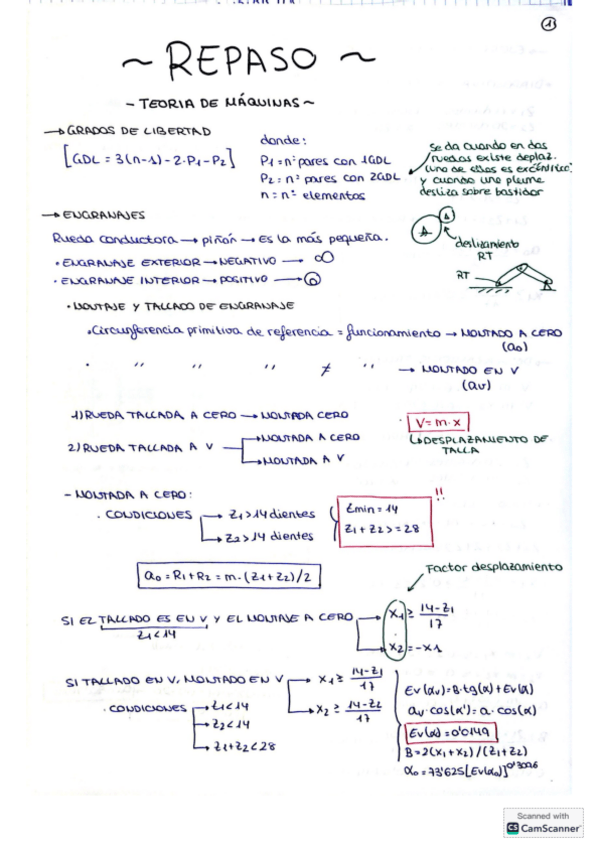 1
~ REPASO ~
- TEORIA DE MÁQUINAS ~
→ GRADOS DE LIBERTAD
[GDL = 3(n-1) - 2·P1 - P2]
donde:
P1 = nº pares con 1GDL
P2 = nº pares con 2GDL
n = nº elementos
Se da cuando en dos
ruedas existe deplaz.
(uno de ellos es excéntrico)
y cuando una pleuma
desliza sobre bastidor
→ ENGRANAJES
Rueda conductora → piñón → Es la más pequeña.
· ENGRANAJE EXTERIOR → NEGATIVO →
· ENGRANAJE INTERIOR → POSITIVO →
deslizamiento
RT
RT →
· MONTAJE Y TALLADO DE ENGRANAJE
· Circunferencia primitiva de referencia = funcionamiento → MONTADO A CERO
(a0)
· " " " ≠ " → MONTADO EN V
(av)
1) RUEDA TALLADA A CERO → MONTADA CERO
2) RUEDA TALLADA A V → MONTADA A CERO
→ MONTADA A V
· V = m·x
↳ DESPLAZAMIENTO DE
TALLA
- MONTADA A CERO:
· CONDICIONES → Z1 > 14 dientes
→ Z2 > 14 dientes
!!
Zmin = 14
Z1 + Z2 >= 28
a0 = R1 + R2 = m·(Z1 + Z2)/2
Factor desplazamiento
SI EL TALLADO ES EN V Y EL MONTAJE A CERO → X1 ≥ 14-Z1/17
Z1 < 14
→ X2 = -X1
SI TALLADO EN V, MONTADO EN V → X1 ≥ 14-Z1/17
→ X2 ≥ 14-Z2/17
· CONDICIONES → Z1 < 14
→ Z2 < 14
→ Z1 + Z2 < 28
Ev(αv) = B·tg(α) + Ev(α)
av·cos(α') = a·cos(α)
Ev(α) = 0'0149
B = 2(X1 + X2)/(Z1 + Z2)
α0 = 73'625[Ev(α0)]^0'3026
Scanned with
CS CamScanner